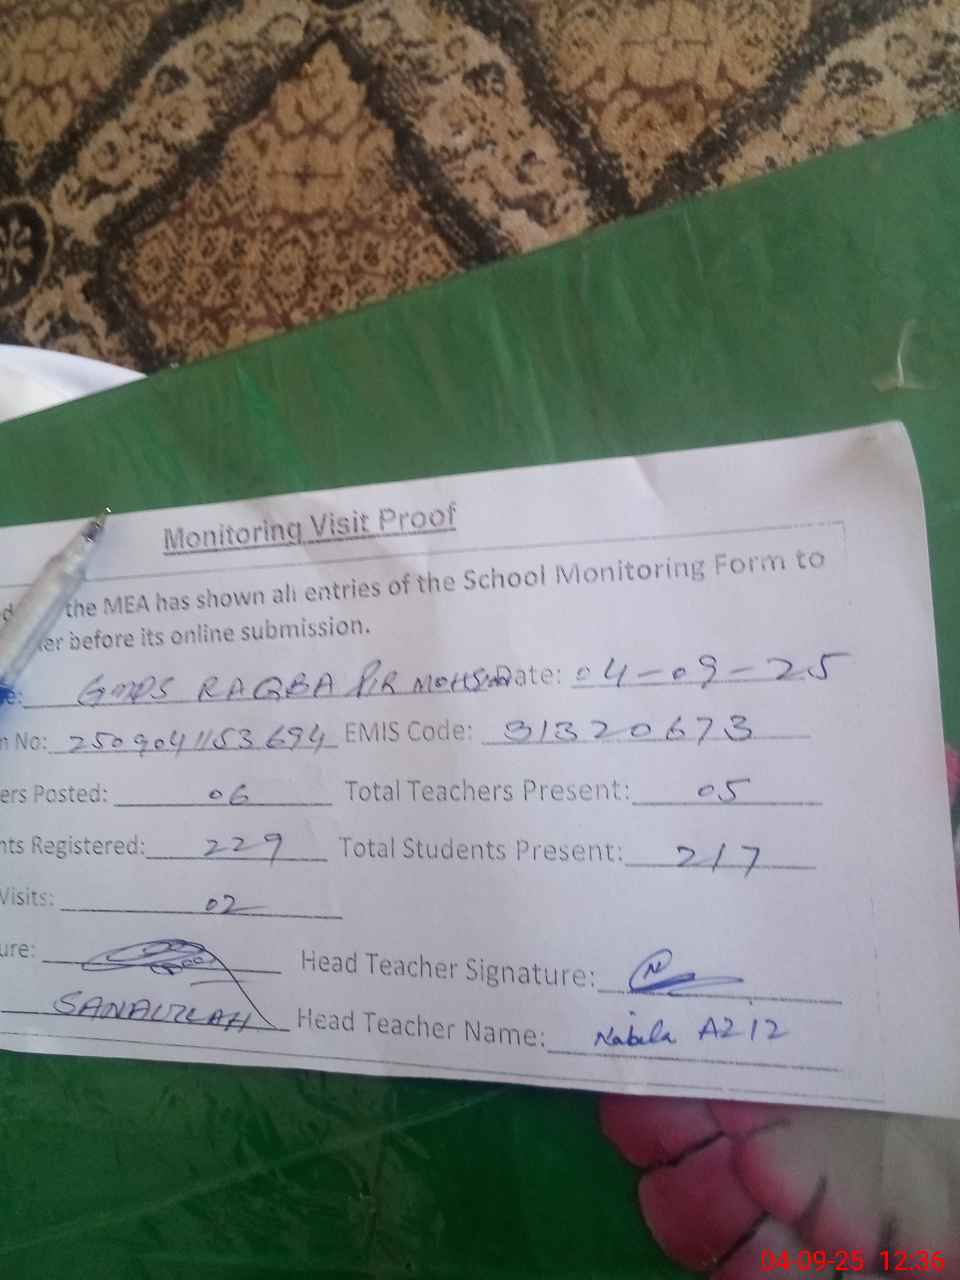 Monitoring Visit Proof
the MEA has shown all entries of the School Monitoring Form to
before its online submission.
GMPS RAQBA PIR MOHSIN Date: 04-09-25
No: 2509041153694 EMIS Code: 31320673
ers Posted: 06 Total Teachers Present: 05
nts Registered: 229 Total Students Present: 217
Visits: 02
ure: Head Teacher Signature:
SANAULLAH Head Teacher Name: Nabila AZIZ
04-09-25 12:36